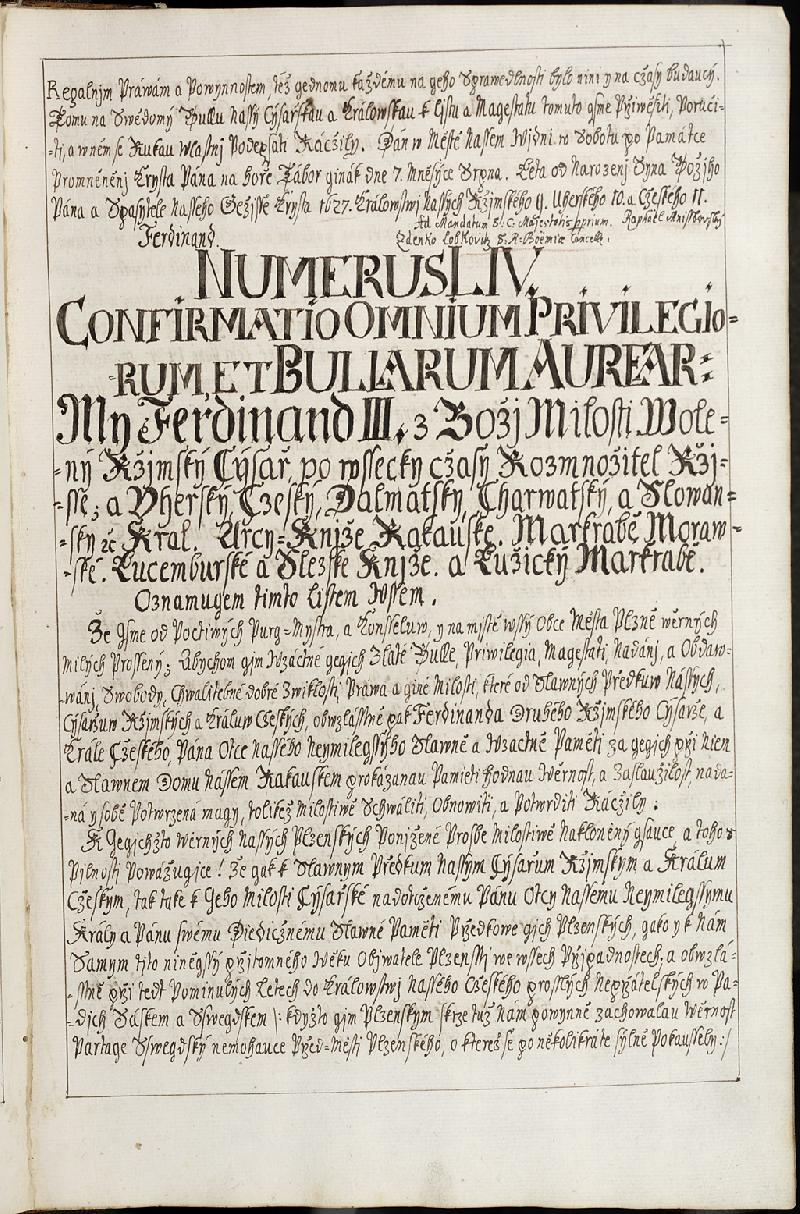 Regalnjm Práwám a Powynnostem též gednomu každému na geho Sprawedlnosti bylo nini y na cžasy budaucý.
Tomu na Swědomý Bullu Nassý Cýsařskau a Královskau k Listu a Magestátu tomuto gsme Přiwěsyti, Poruči-
-ti, a wněm se Rukau wlastnj Podepsati Ráčžily. Dán w Městě Nassem Wjdni w Sobotu po Památce
Proměněnj Krysta Pána na hoře Tábor ginák dne 7. Měsýce Srpna. Léta od Narozenj Syna Božjho
Pána a Spasytele Nasseho Gežisse Krysta 1627. Králowstwj Nassých Ržjmského 9. Uherského 10. a Cžeského 11.
Ferdinand.
Ad Mandatum S. C. Majestatis proprium. Raphael Mnissowský
Zdenko Lobkovitz S. R. Boemiæ Cancell:
NUMERUS LIV.
CONFIRMATIO OMNIUM PRIVILEGIO-
-RUM, ET BULLARUM AUREAR:
My Ferdinand III. z Božj Milosti Wole-
-ný Ržjmský Cýsař, po wssecky cžasy Rozmnožitel Ržj-
-sse; a Vherský, Czeský, Dalmátský, Charwatský, a Slowan-
-ský ꝛc Král. Arcy-Kniže Rakauské. Markrabě Moraw-
-ské. Lucemburské a Slezské Kniže. a Lužický Markrabě.
Oznamugem timto Listem Wssem.
Že Gsme od Poctiwých Purg-Mystra, a Konsseluw, y na mistě wssý Obce Města Plzně wěrných
milých Prosseny; Abychom gjm Wzáctné gegich Zlaté Bulle, Priwilegia, Magestáti, Nadánj, a Obdaw-
-wánj, Swobody, Chwalitebné dobré Zwiklosti, Práwa a giné Milosti, které od Slawných Předkuw Nássých,
Cýsařuw Ržjmských a Králuw Cžeských, obwzlásstně pak Ferdinanda Druhého Ržjmského Cýsarže, a
Krále Cžeského, Pána Otce Nasseho Neymilegssýho Slawné a Wzactné Paměti za gegich při Něm
a Slawnem Domu Nássem Rakauskem prokázanau Pamieti hodnau Wěrnost, a Zasłaužilost, nada-
-ná y sobě Potwrzená magy, tolikéž Milostiwě Schwáliti, Obnowiti, a Potwrditi Ráčžily.
K Gegichžto Wěrných Nassých Plzenských Ponjžené Prosbě Milostiwě Nakloněný gsauce, a toho s
Pilnosti Powážugice! Že gak k Slawnym Předkum Nassým Cýsařum Ržjmským a Králum
Cžeským, tak také k Geho Milosti Cýsařské nadotčenému Pánu Otcy Nassému Neymilegssýmu
Králi, a Pánu swému Diedicžnému Slawné Paměti Przedkowe gjch Plzenských, gako y k Nám
Samym tito ninégssý pržitomného Wěku Obýwatele Plzensstj we wssech Pržjpadnostech; a obwzlá-
-sstně pržj tedť Pominulých Letech do Králowstwj Nasseho Cžeského prosslých Nepržátelských w Pa-
-dich Sáskem a Sswegdskem /: kdyžto gim Plzenskym skrze tuž Nám powynně zachowalau Wěrnost
Partage Sswegdský nemohauce Przed-Městi Plzenského, o které se po několikráte sylně Pokausseli :/